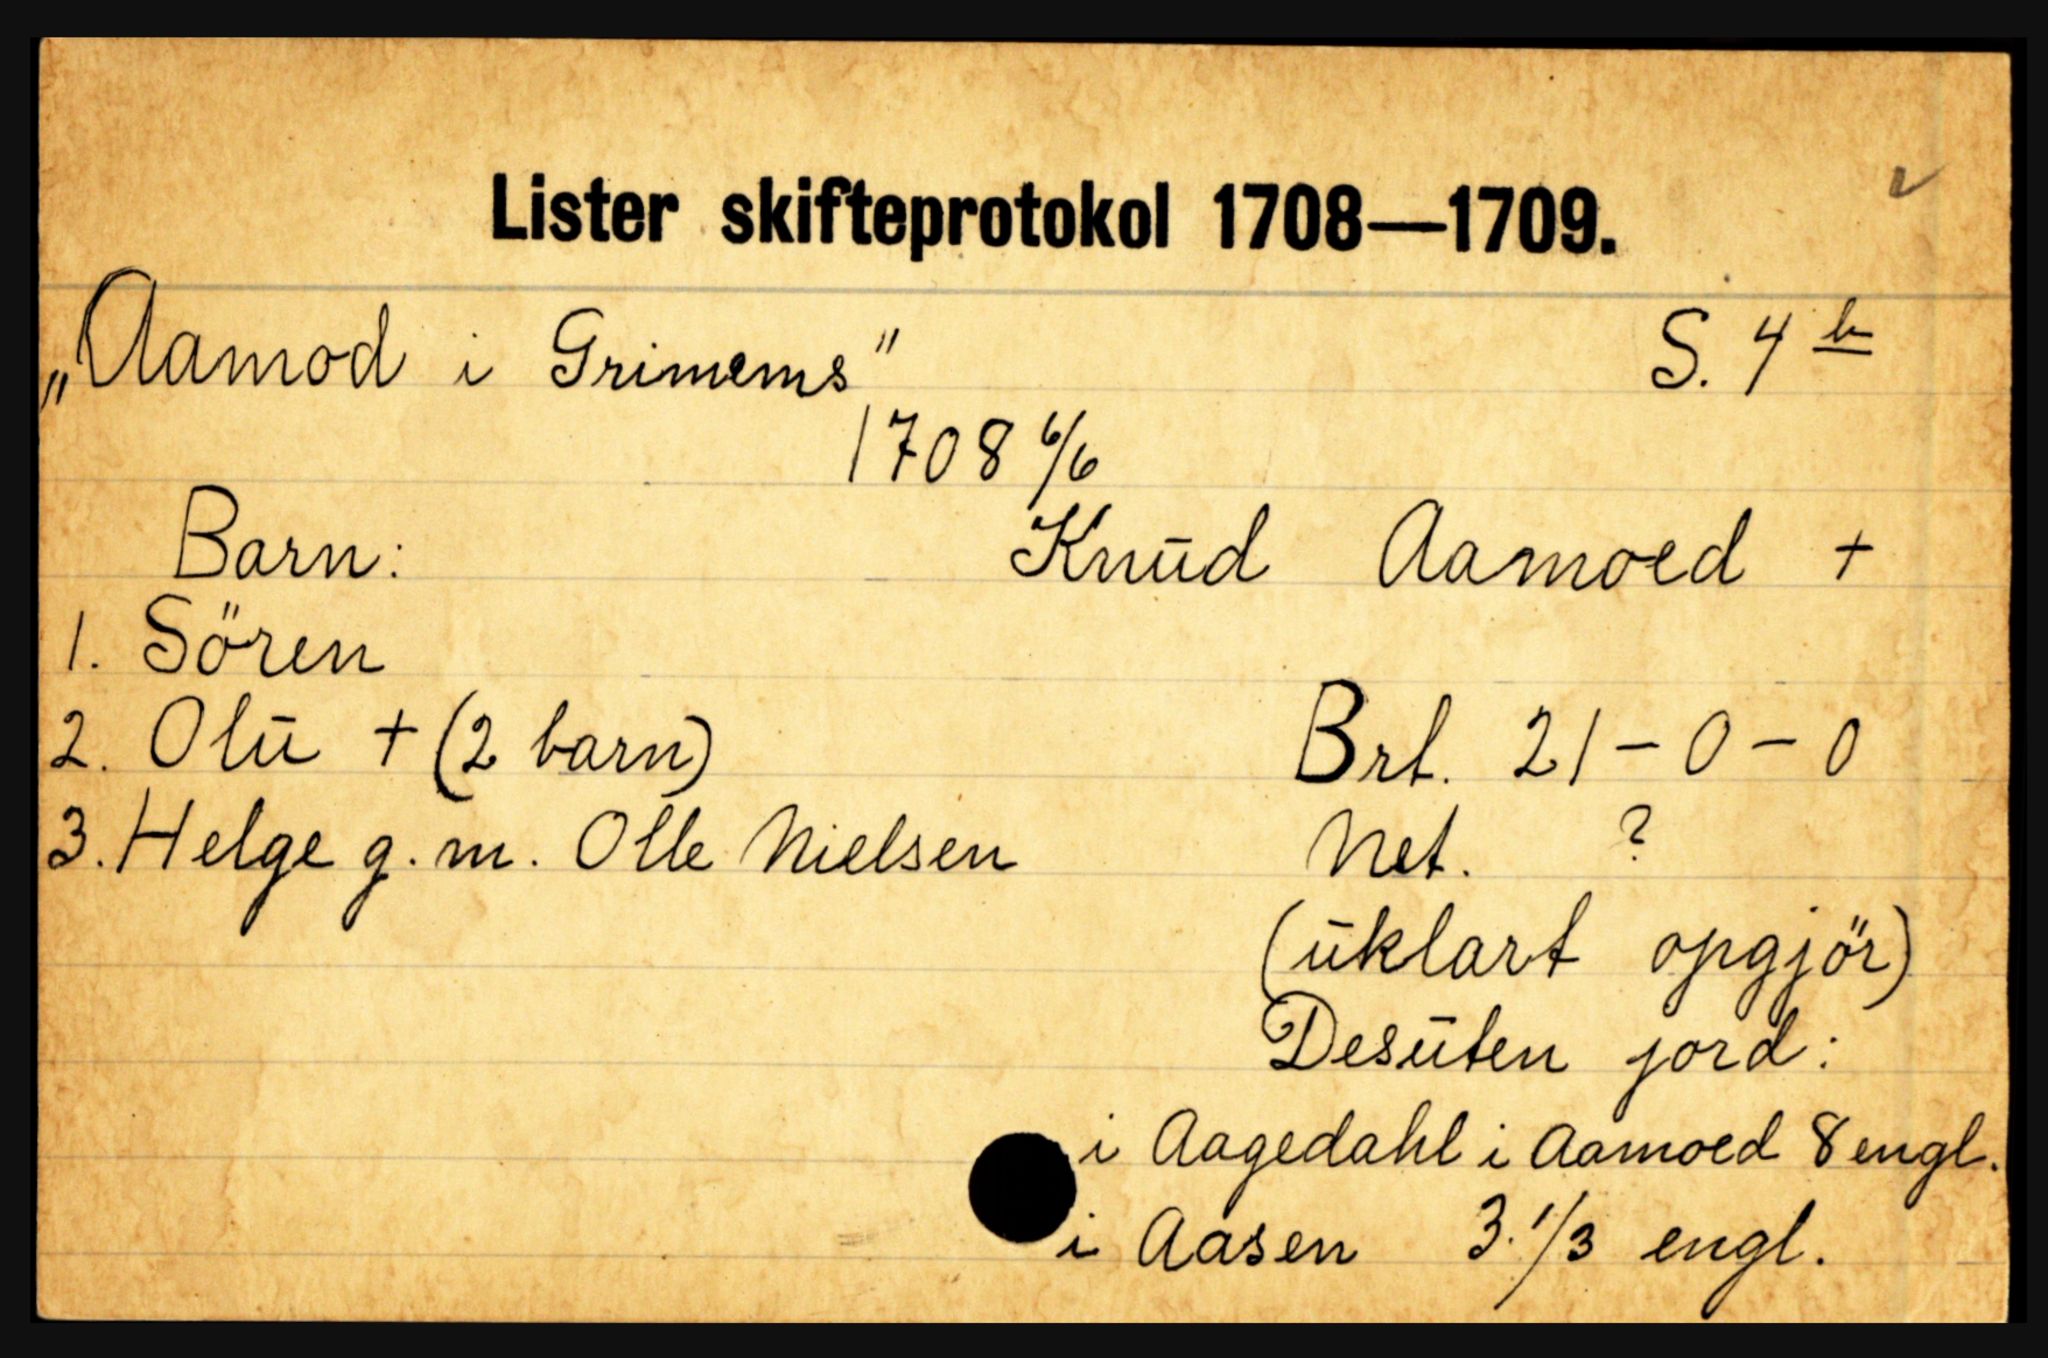 Lister skifteprotokol 1708—1709.
„Aamod i Grimems" S. 4 b
1708 6/6
Barn: Knūd Aamoed +
1. Sören
2. Olū + (2 barn) Brt. 21 - 0 - 0
3. Helge g. m. Olle Nielsen Net. ?
(ūklart opgjör)
Desūten jord:
i Aagedahl i Aamoed 8 engl.
i Aasen 3.1/3 engl.